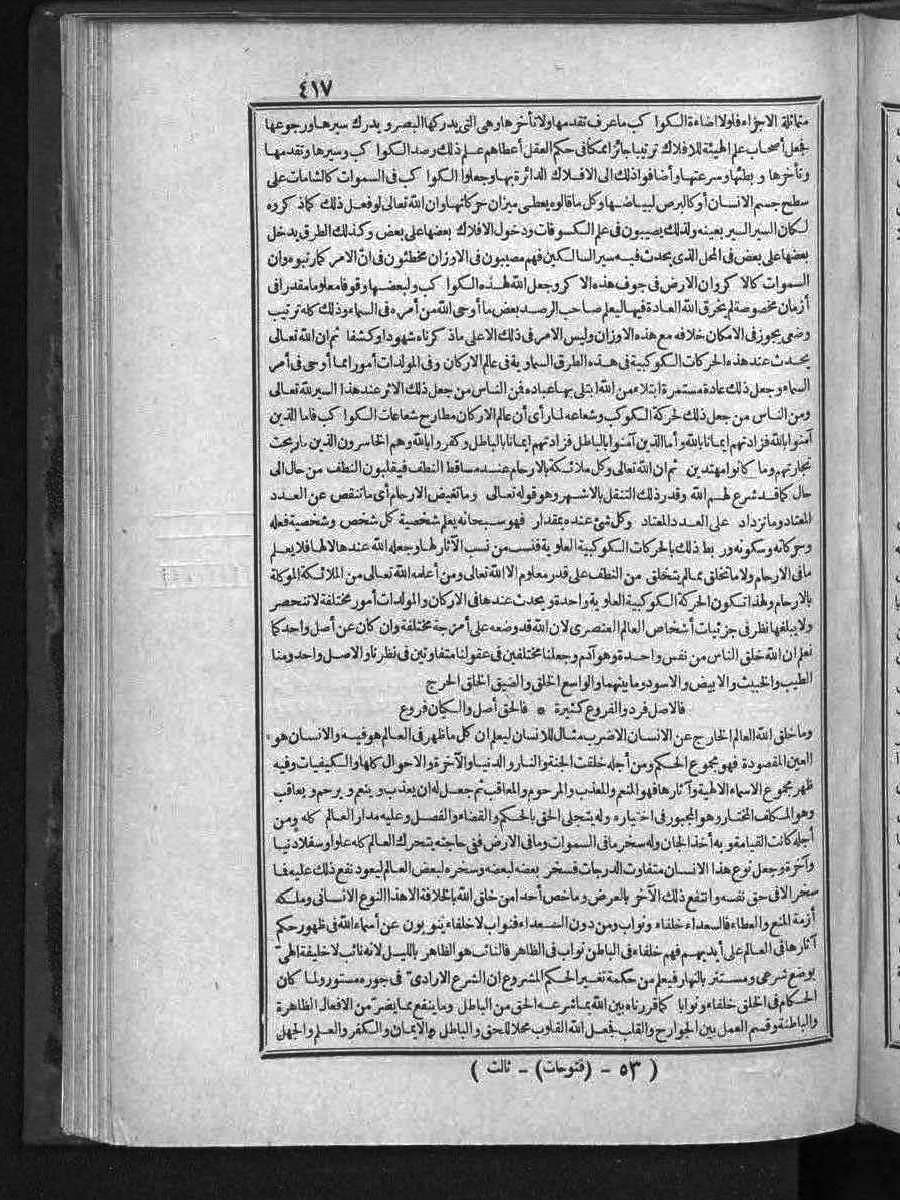 ٤١٧
متماثلة الاجزاء فلولا اضاءة الكواكب ما عرف تقدمها ولا تأخرها وهى التى يدركها البصر ويدرك سيرها ورجوعها
فجعل أصحاب علم الهيئة للافلاك ترتيبا جائزا ممكنا فى حكم العقل أعطاهم علم ذلك رصد الكواكب وسيرها وتقدمها
وتأخرها وبطئها وسرعتها وأضافوا ذلك الى الافلاك الدائرة بها وجعلوا الكواكب فى السموات كالشامات على
سطح جسم الانسان أو كالبرص لبياضها وكل ما قالوه يعطى ميزان حركاتها وان الله تعالى لو فعل ذلك كما ذكروه
لكان السير السير بعينه ولذلك يصيبون فى علم الكسوفات ودخول الافلاك بعضها على بعض وكذلك الطرق يدخل
بعضها على بعض فى المحل الذى يحدث فيه سير السالكين فهم مصيبون فى الاوزان مخطئون فى انّ الامر كما رتبوه وان
السموات كالاكر وان الارض فى جوف هذه الاكر وجعل الله لهذه الكواكب ولبعضها وقوفا معلوما مقدرا فى
أزمان مخصوصة لم يخرق الله العادة فيها ليعلم صاحب الرصد بعض ما أوحى الله من أمره فى السماء وذلك كله ترتيب
وضعى يجوز فى الامكان خلافه مع هذه الاوزان وليس الامر فى ذلك الا على ما ذكرناه شهودا وكشفا ثم ان الله تعالى
يحدث عند هذه الحركات الكوكبية فى هذه الطرق السماوية فى عالم الاركان وفى المولدات أمورا مما أوحى فى أمر
السماء وجعل ذلك عادة مستمرة ابتلاء من الله ابتلى بها عباده فمن الناس من جعل ذلك الاثر عند هذا السير لله تعالى
ومن الناس من جعل ذلك لحركة الكوكب وشعاعه لما رأى أن عالم الاركان مطارح شعاعات الكواكب فاما الذين
آمنوا بالله فزادتهم ايمانا بالله وأما الذين آمنوا بالباطل فزادتهم ايمانا بالباطل وكفروا بالله وهم الخاسرون الذين ما ربحت
تجارتهم وما كانوا مهتدين ثم ان الله تعالى وكل ملائكة بالارحام عند مساقط النطف فيقلبون النطف من حال الى
حال كما قد شرع لهم الله وقدر ذلك التنقل بالاشهر وهو قوله تعالى وما تغيض الارحام أى ما تنقص عن العدد
المعتاد وما تزداد على العدد المعتاد وكل شئ عنده بمقدار فهو سبحانه يعلم شخصية كل شخص وشخصية فعله
وحركاته وسكونه وربط ذلك بالحركات الكوكبية العلوية فنسب من نسب الآثار لها وجعله الله عندها لا لها فلا يعلم
ما فى الارحام ولا ما تخلق مما لم يتخلق من النطف على قدر معلوم الا الله تعالى ومن أعلمه الله تعالى من الملائكة الموكلة
بالارحام ولهذا تكون الحركة الكوكبية العلوية واحدة ويحدث عندها فى الاركان والمولدات أمور مختلفة لا تنحصر
ولا يبلغها نظر فى جزئيات أشخاص العالم العنصرى لان الله قد وضعه على أمزجة مختلفة وان كان عن أصل واحد كما
نعلم ان الله خلق الناس من نفس واحدة وهو آدم وجعلنا مختلفين فى عقولنا متفاوتين فى نظرنا والاصل واحد ومنا
الطيب والخبيث والابيض والاسود وما بينهما والواسع الخلق والضيق الخلق الحرج
فالاصل فرد والفروع كثيرة * فالحق أصل والكيان فروع
وما خلق الله العالم الخارج عن الانسان الا ضرب مثال للانسان ليعلم ان كل ما ظهر فى العالم هو فيه والانسان هو
العين المقصودة فهو مجموع الحكم ومن أجله خلقت الجنة والنار والدنيا والآخرة والاحوال كلها والكيفيات وفيه
ظهر مجموع الاسماء الالهية وآثارها فهو المنعم والمعذب والمرحوم والمعاقب ثم جعل له ان يعذب وينعم ويرحم ويعاقب
وهو المكلف المختار وهو المجبور فى اختياره وله يتجلى الحق بالحكم والقضاء والفصل وعليه مدار العالم كله ومن
أجله كانت القيامة وبه أخذ الجان وله سخر ما فى السموات وما فى الارض ففى حاجته يتحرك العالم كله علوا وسفلا دنيا
وآخرة وجعل نوع هذا الانسان متفاوت الدرجات فسخر بعضه لبعضه وسخره لبعض العالم ليعود نفع ذلك عليه فما
سخر الا فى حق نفسه وانتفع ذلك الآخر بالعرض وما خص أحدا من خلق الله بالخلافة الا هذا النوع الانسانى وملكه
أزمة المنع والعطاء فالسعداء خلفاء ونواب ومن دون السعداء فنواب لا خلفاء ينوبون عن أسماء الله فى ظهور حكم
آثارها فى العالم على أيديهم فهم خلفاء فى الباطن نواب فى الظاهر فالنائب هو الظاهر بالليل لانه نائب لا خليفة الهى
بوضع شرعى ومستتر بالنهار فيعلم من حكمة تغيير الحكم المشروع ان الشرع الارادىّ فى جوره مستور ولما كان
الحكام فى الخلق خلفاء ونوابا كما قررناه بين الله بما شرعه الحق من الباطل وما ينفع مما يضرّ من الافعال الظاهرة
والباطنة وقسم العمل بين الجوارح والقلب فجعل الله القلوب محلا للحق والباطل والايمان والكفر والعلم والجهل
( ٥٣ - (فتوحات) - ثالث )